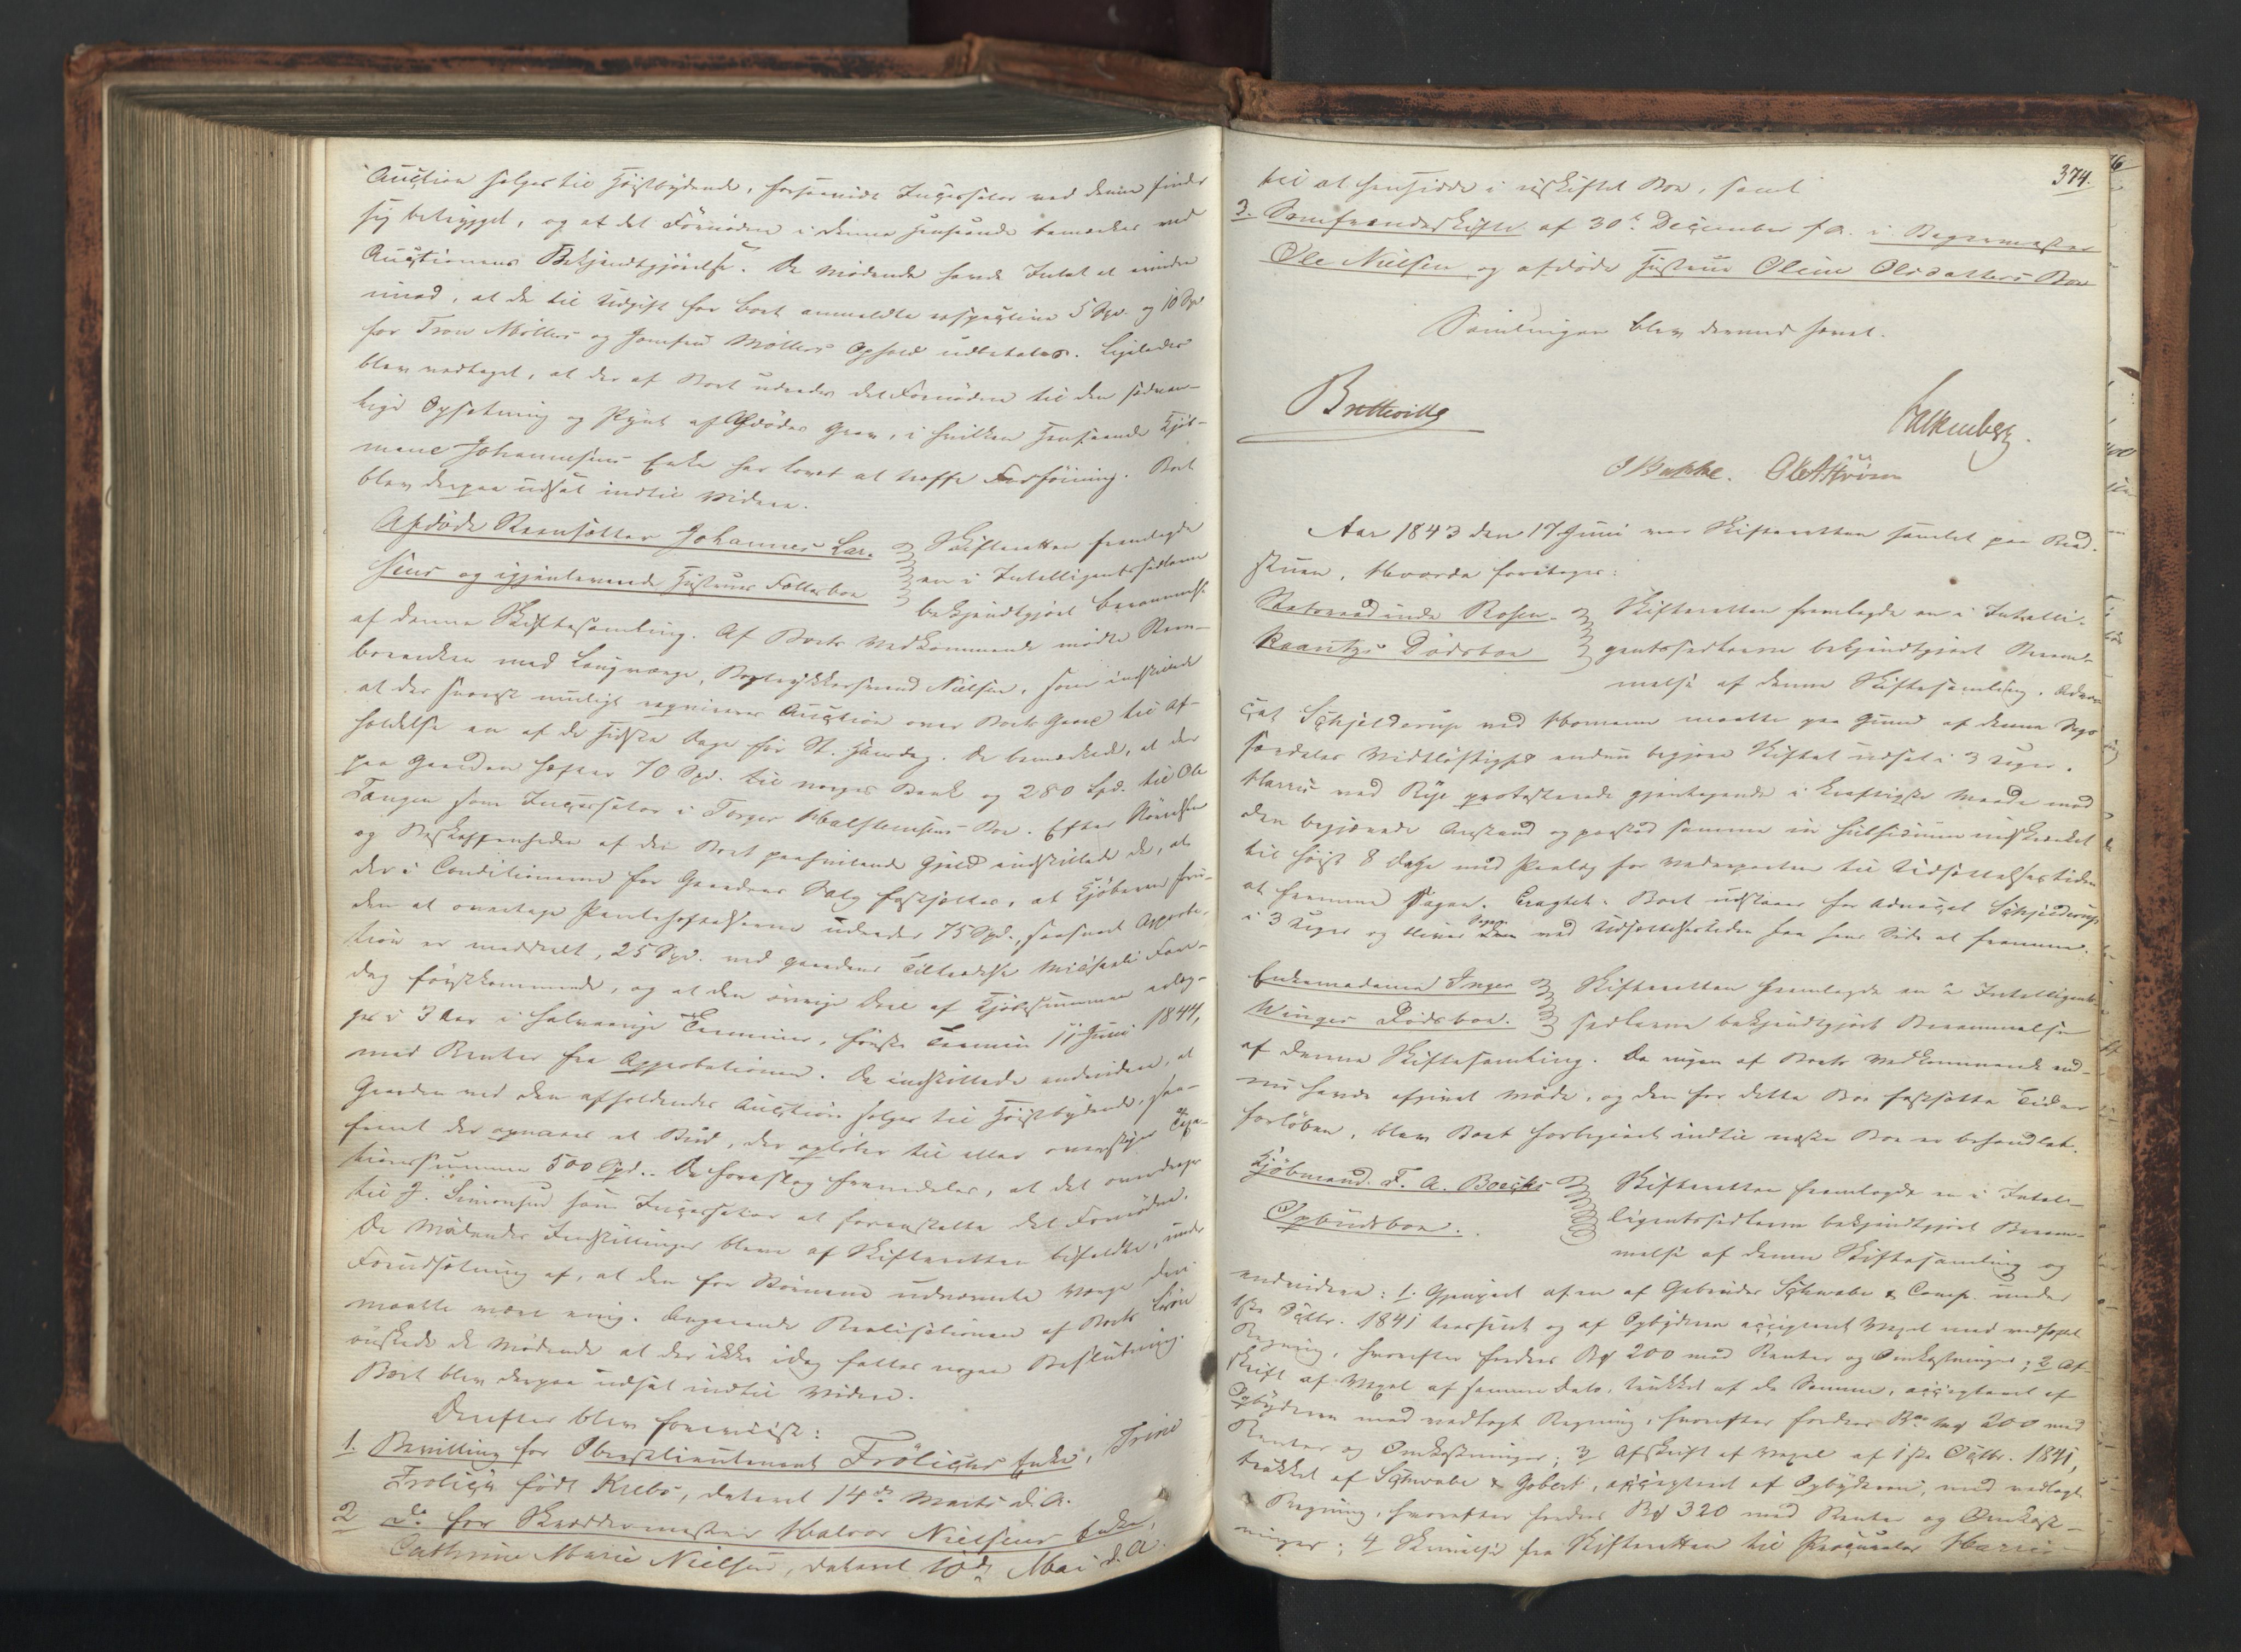 Auction sælges til Høistbydende, forsaavidt Incassator ved denne finder
sig betrygget, og at det Fornødne i denne Henseende bemærkes ved
Auctionens Bekjendtgjørelse. De Mødende havde Intet at erindre
imod, at de til Udgift for Boet anmeldte respective 5 Spd. og 10 Spd
for Tron Møllers og Jomfru Møllers Ophold udbetales. Ligeledes
blev vedtaget, at der af Boet udredes det Fornødne til den sædvan-
lige Opsætning og Pynt af Afdødes Grav, i hvilken Henseende Kjøb-
mand Johannesens Enke har lovet at træffe Forføining. Boet
blev derpaa udsat indtil Videre.
Afdøde Steensætter Johannes Lar-
sens og igjenlevende Hustrues Fællesboe
Skifteretten fremlagde
en i Intelligentssedlerne
bekjendtgjort Berammelse
af denne Skiftesamling. Af Boets Vedkommende mødte Steen-
boerenken med Laugværge, Bogtrykkersvend Nielsen, som indstillede
at der snarest muligt requireres Auction over Boets Gaard til Af-
holdelse en af de sidste Dage før St. Hansdag. De bemærkede, at der
paa Gaarden hefter 70 Spd. til Norges Bank og 280 Spd. til Ole
Tangen som Incassator i Torger Halstensens Boe. Efter Størrelsen
og Beskaffenheden af den Boet paahvilende Gjeld indstillede de, at
der i Conditionerne for Gaardens Salg fastsættes, at Kjøberen foru-
den at overtage Panteheftelserne udreder 75 Spd., saasnart Approba-
tion er meddeelt, 25 Spd. ved Gaardens Tiltrædelse Michaeli Fare-
dag førstkommende, og at den øvrige Deel af Kjøbesummen erlæg-
ges i 3 Aar i halvaarige Terminer, første Termin 11 Juni 1844,
med Renter fra Approbationen. De indstillede endvidere, at
Gaarden ved den afholdendes Auction sælges til Høistbydende, saa-
fremt der opnaaes et Bud, der opløber til eller overstiger Taxa-
tionssummen 500 Spd. De foreslog fremdeles, at det overdrages
til J. Simonsen som Incassator at foranstalte det Fornødne.
De Mødendes Indstillinger bleve af Skifteretten bifaldte, under
Forudsætning af, at den for Børnene udnævnte Værge deri
maatte være enig. Angaaende Realisationen af Boets Løsøre
ønskede de Mødende at der ikke idag fattes nogen Beslutning.
Boet blev derpaa udsat indtil Videre.
Derefter blev foreviist:
1. Bevilling for Oberstlieutenant Frølichs Enke, Trine
Frolich født Krebs, dateret 14de Marts d. A.
2 do for Skræddermester Halvor Nielsens Enke,
Cathrine Marie Nielsen, dateret 10de Mai d. A.
374.
til at hensidde i uskiftet Boe, samt
3. Samfrændeskifte af 30te December f. A. i Bagermester
Ole Nielsen og afdøde Hustrue Oline Olsdatters Boe
Samlingen blev dermed hævet.
Bretteville
Falkenberg.
Bakke. Ole Strøm
Aar 1843 den 17 Juni var Skifteretten samlet paa Raad-
stuen, Hvorda foretoges:
Statsraadinde Rosen-
krantzs Dødsboe
Skifteretten fremlagde en i Intelli-
gentssedlerne bekjendtgjort Beram-
melse af denne Skiftesamling. Advo-
cat Schjelderup ved Homann maatte paa Grund af denne Sags
særdeles Vidtløftighed endnu begjære Skiftet udsat i 3 Uger.
Harris ved Rye protesterede gjentagende i kraftigste Maade mod
den begjærede Anstand og paastod samme in subsidium indskrænket
til høist 8 Dage med Paalæg for Vederparten til Udsættelsestiden
at fremme Sagen. Eragtet: Boet udstaaer for Advocat Schjelderup
i 3 Uger og bliver Sagen ved Udsættelsestiden fra hans Side at fremme.
Enkemadame Inger
Winges Dødsboe.
Skifteretten fremlagde en i Intelligents-
sedlerne bekjendtgjort Berammelse
af denne Skiftesamling. Da ingen af Boets Vedkommende end-
nu havde afgivet Møde, og den for dette Boe fastsatte Tid er
forløben, blev Boet forbigaaet indtil næste Boe er behandlet.
Kjøbmand F. A. Boecks
Opbudsboe.
Skifteretten fremlagde en i Intel-
ligentssedlerne bekjendtgjort Beram-
melse af denne Skiftesamling og
endvidere: 1. Gjenpart af en af Gebrüder Schwabe & Comp. under
1ste Octbr. 1841 trasseret og af Opbyderen accepteret Vexel med vedhæftet
Regning, hvorefter fordres Bz 200 med Renter og Omkostninger; 2 Af-
skrift af Vexel af samme Dato, trukket af de Samme, accepteret af
Opbyderen med vedlagt Regning, hvorefter fordres Bco 200 med
Renter og Omkostninger; 3 Afskrift af Vexel af 1ste Octbr. 1841,
trukket af Schwabe & Gobert, accepteret af Opbyderen, med vedlagt
Regning, hvorefter fordres Bz 320 med Renter og Omkost-
ninger; 4 Skrivelse fra Skifteretten til Procurator Harris